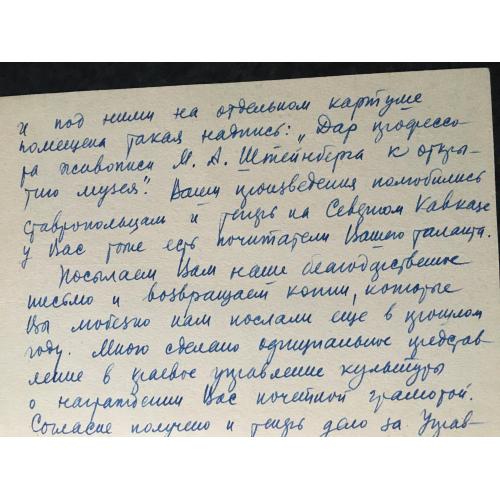 и под ними на отдельном картуше
помещена такая надпись: „Дар профессо-
ра живописи М. А. Штейнберга к откры-
тию музея". Ваши произведения полюбились
ставропольцам и теперь на Северном Кавказе
у Вас тоже есть почитатели Вашего таланта.
Посылаем Вам наше благодарственное
письмо и возвращаем копии, которые
Вы любезно нам послали еще в прошлом
году. Мною сделано официальное представ-
ление в краевое управление культуры
о награждении Вас почетной грамотой.
Согласие получено и теперь дело за Управ-